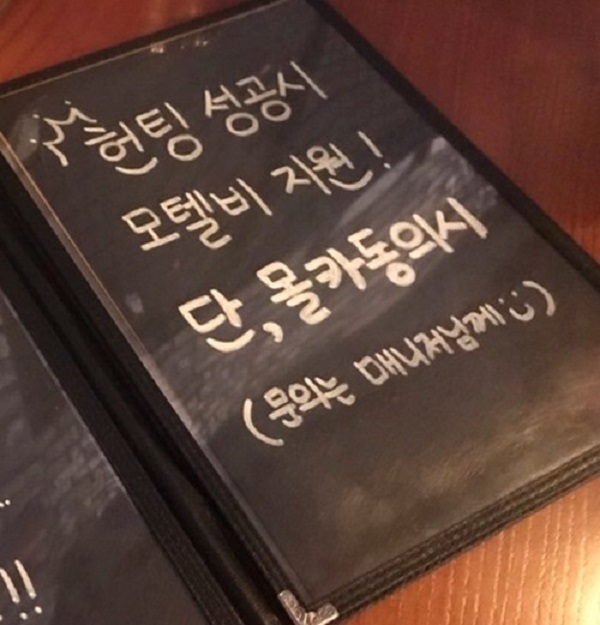 헌팅 성공시
모텔비 지원!
단, 몰카동의시
(문의는 매니저님께 :))
!!!